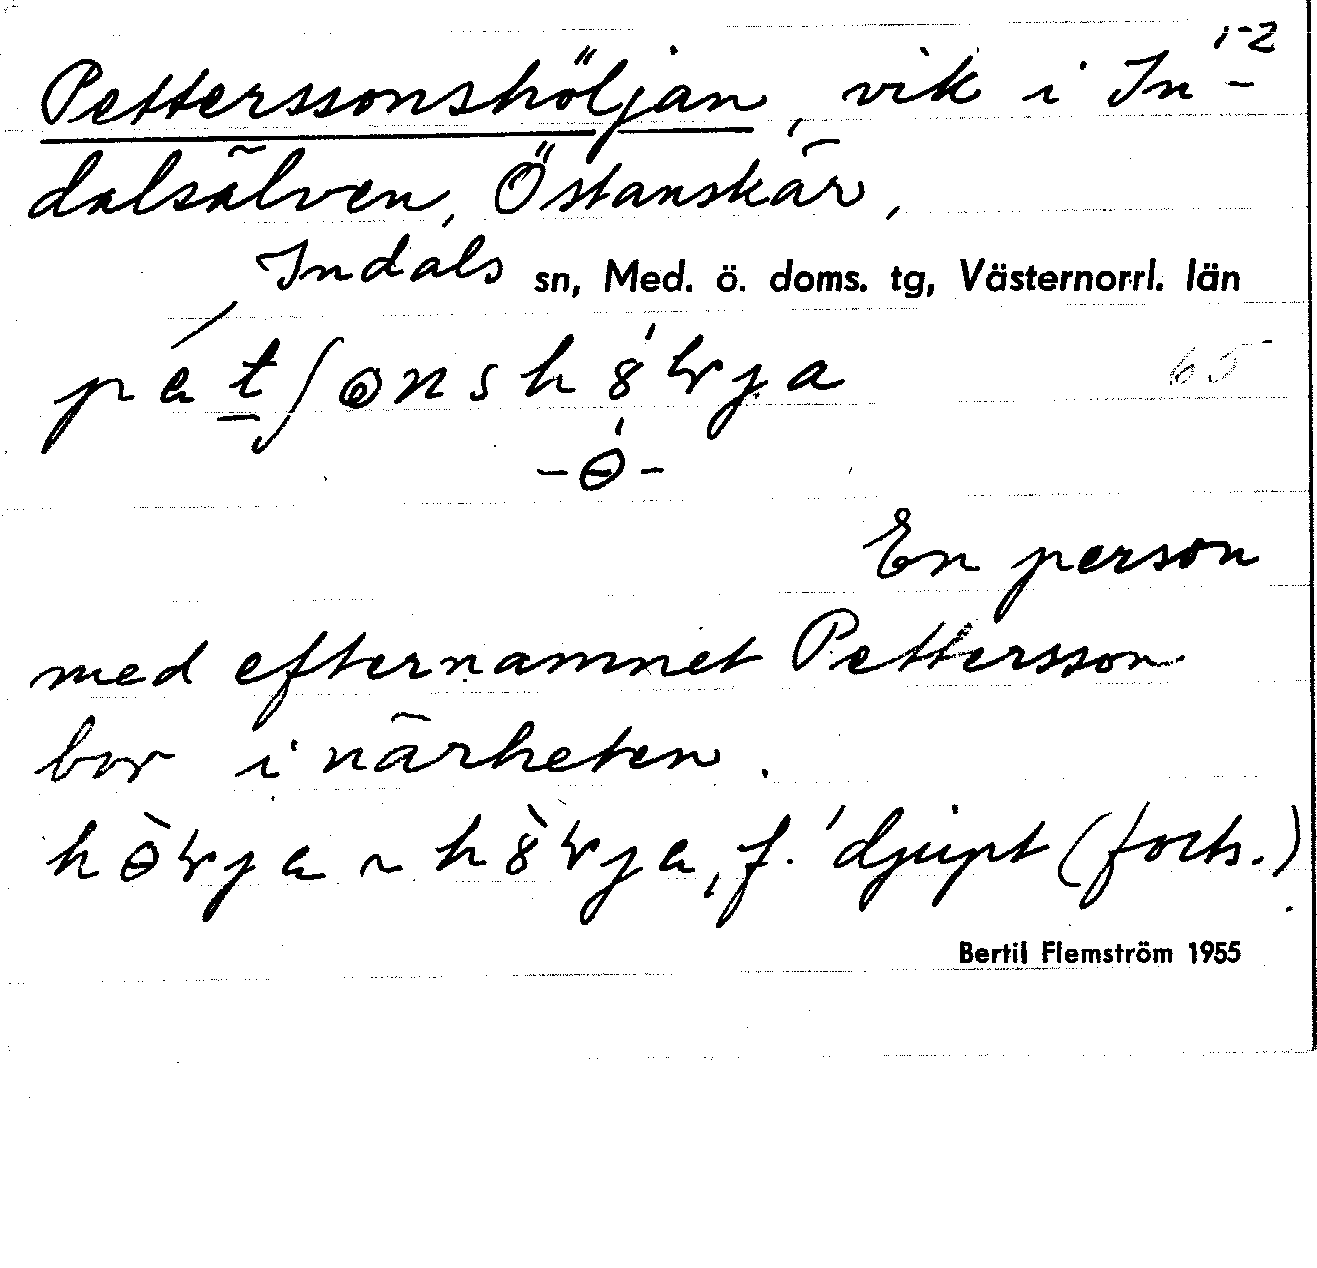 1-2
Petterssonshöljan, vik i In-
dalsälven, Östanskär,
Indals sn, Med. ö. doms. tg, Västernorrl. län
65
-ө́-
En person
med efternamnet Pettersson
bor i närheten.
f. 'djupt (forts.)
Bertil Flemström 1955